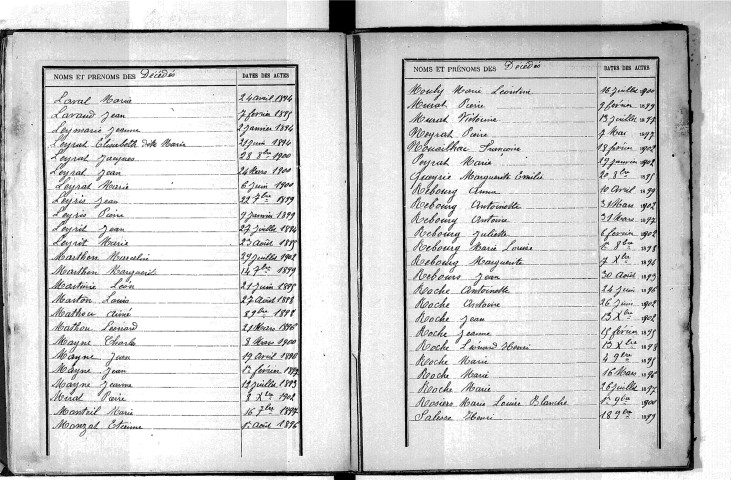 NOMS ET PRÉNOMS DES Décédés DATES DES ACTES
Laval Marie 24 avril 1894
Lavaud Jean 7 février 1895
Leymarie Jeanne 2 Janvier 1894
Leyrat Elisabeth dite Marie 21 Juin 1894
Leyrat Jacques 28 8bre 1900
Leyrat Jean 24 Mars 1900
Leyrat Marie 6 Juin 1900
Leyris Jean 22 7bre 1899
Leyris Pierre 9 Janvier 1899
Leyrit Jean 27 Juillet 1894
Leyrit Marie 23 Août 1895
Marthon Marcelin 29 Juillet 1902
Marthon Marguerite 14 7bre 1899
Léon 21 Juin 1895
Marton Louis 27 Août 1898
Mathieu Aimé 8 9bre 1894
Mathou Léonard 21 Mars 1896
Mayne Charles 8 Mars 1900
Mayne Jean 19 Avril
Mayne Jean février
Mayne Jeanne 12 Juillet 1893
Miral Pierre 8 Xbre 1902
Monteil Marie 16 7bre 1897
Monzat Etienne 1er Août 1896
NOMS ET PRÉNOMS DES Décédés DATES DES ACTES
Mouly Marie Léontine 16 Juillet 1900
Murat Pierre 9 février 1899
Murat Victorine 13 Juillet 1897
Neyrat Pierre 7 Mai 1897
Nouailhac Françoise 18 février 1902
Peyrat Marie 29 Janvier 1902
Queyrie Marguerite Emilie 20 8bre 1895
Rebourg Anna 10 Avril 1899
Rebourg Antoinette 31 Mars 1902
Rebourg Antoine 31 Mars 1897
Rebourg Juliette 6 février 1902
Rebourg Marie Louise 6 8bre 1898
Rebourg Marguerite 7 Xbre 1896
Rebours Jean 30 Août 1893
Roche Antoinette 24 Juin 1896
Roche Antoine 26 Juin 1902
Roche Jean 13 Xbre 1902
Roche Jeanne 15 février 1895
Roche Léonard Henri 13 Xbre 1898
Roche Marie 4 9bre 1895
Roche Marie 16 Mars 1896
Roche Marie 26 Juillet 1897
Rosiers Marie Louise Blanche 1er 9bre 1900
Salesse Henri 18 9bre 1899